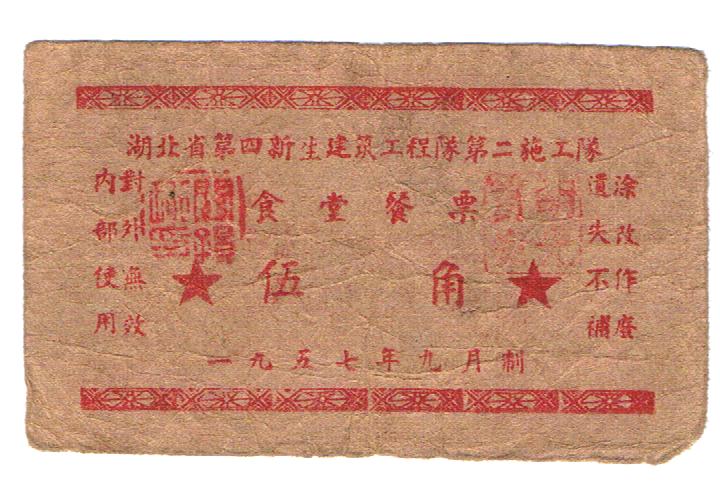 湖北省第四新生建筑工程隊第二施工隊
食堂餐票
伍角
對外無效
內部使用
涂改作廢
遺失不補
一九五七年九月制